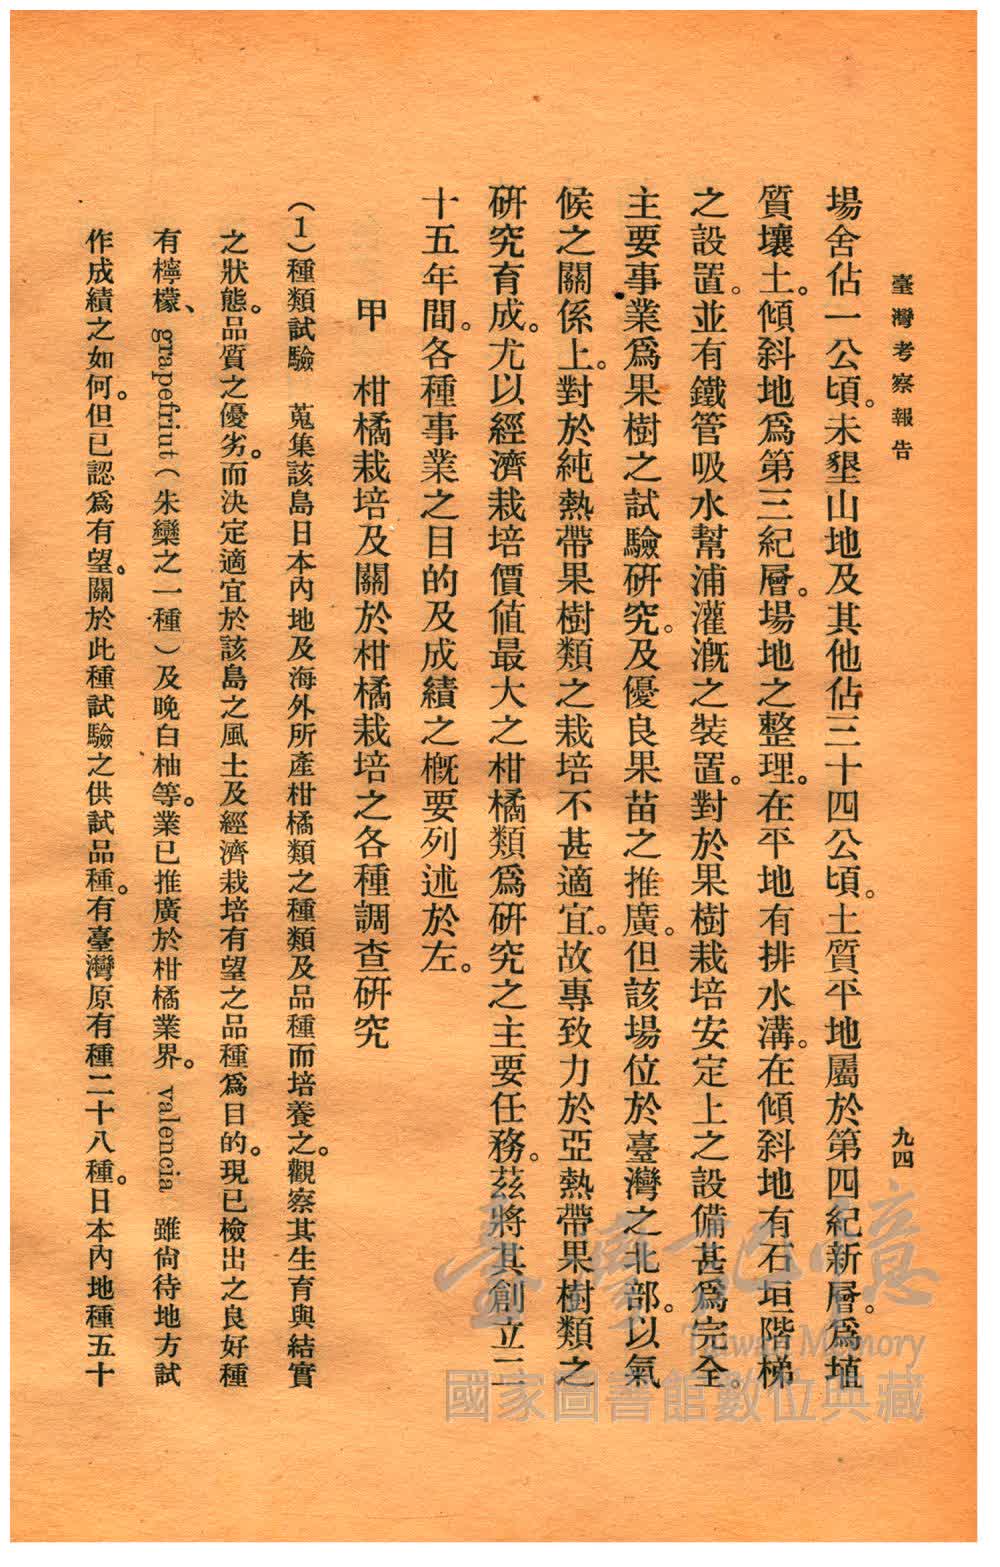 臺灣考察報告
九四
場舍佔一公頃。未墾山地及其他佔三十四公頃。土質平地屬於第四紀新層。爲埴
質壤土。傾斜地爲第三紀層。場地之整理。在平地有排水溝。在傾斜地有石垣階梯
之設置。並有鐵管吸水幫浦灌漑之裝置。對於果樹栽培安定上之設備甚爲完全。
主要事業爲果樹之試驗硏究。及優良果苗之推廣。但該場位於臺灣之北部。以氣
候之關係上。對於純熱帶果樹類之栽培不甚適宜。故專致力於亞熱帶果樹類之
硏究育成。尤以經濟栽培價値最大之柑橘類爲硏究之主要任務。茲將其創立二
十五年間。各種事業之目的及成績之槪要列述於左。
甲 柑橘栽培及關於柑橘栽培之各種調查硏究
(1)種類試驗 蒐集該島日本內地及海外所產柑橘類之種類及品種而培養之。觀察其生育與結實
之狀態。品質之優劣。而決定適宜於該島之風土及經濟栽培有望之品種爲目的。現已檢出之良好種
有檸檬、grapefriut(朱欒之一種)及晚白柚等。業已推廣於柑橘業界。valencia 雖尙待地方試
作成績之如何。但已認爲有望。關於此種試驗之供試品種。有臺灣原有種二十八種。日本內地種五十
臺灣記憶
Taiwan Memory
國家圖書館數位典藏